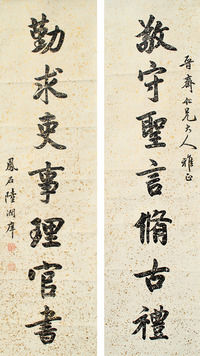 晉齋仁兄大人雅正
敬守聖言脩古禮
勤求吏事理官書
鳳石陸潤庠